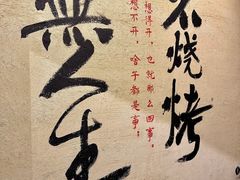 不烧烤
想得开，也就那么回事，
想不开，啥子都是事；
無人生